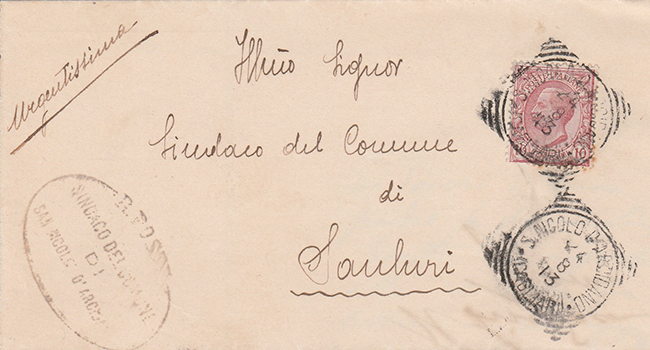 Urgentissima
Illmo Signor
Sindaco del Comune
di
Sanluri
SINDACO DEL COMUNE
DI
SAN NICOLO D'ARCIDANO
S. NICOLO D'ARCIDANO
8
13